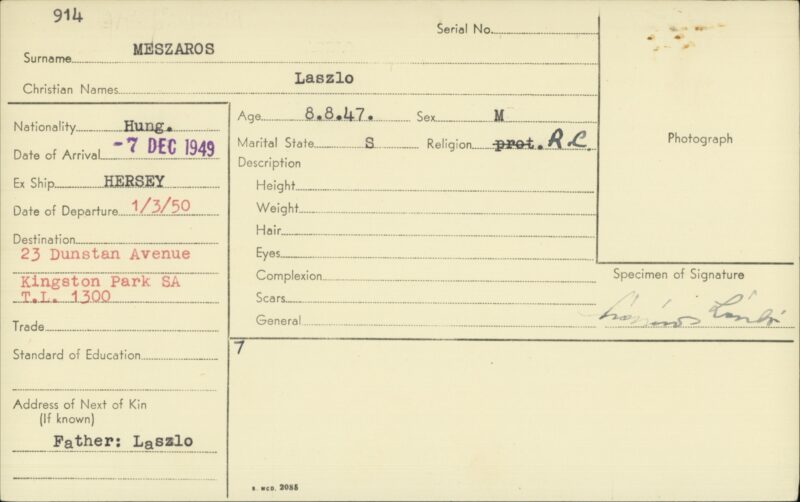 914
Serial No.
Surname MESZAROS
Christian Names Laszlo
Nationality Hung.
Date of Arrival -7 DEC 1949
Ex Ship HERSEY
Date of Departure 1/3/50
Destination
23 Dunstan Avenue
Kingston Park SA
T.L. 1300
Trade
Standard of Education
Address of Next of Kin
(If known)
Father: Laszlo
Age 8.8.47. Sex M
Marital State S Religion prot. R.C.
Description
Height
Weight
Hair
Eyes
Complexion
Scars
General
Photograph
Specimen of Signature
Mészáros László
7
S. MCD. 2085